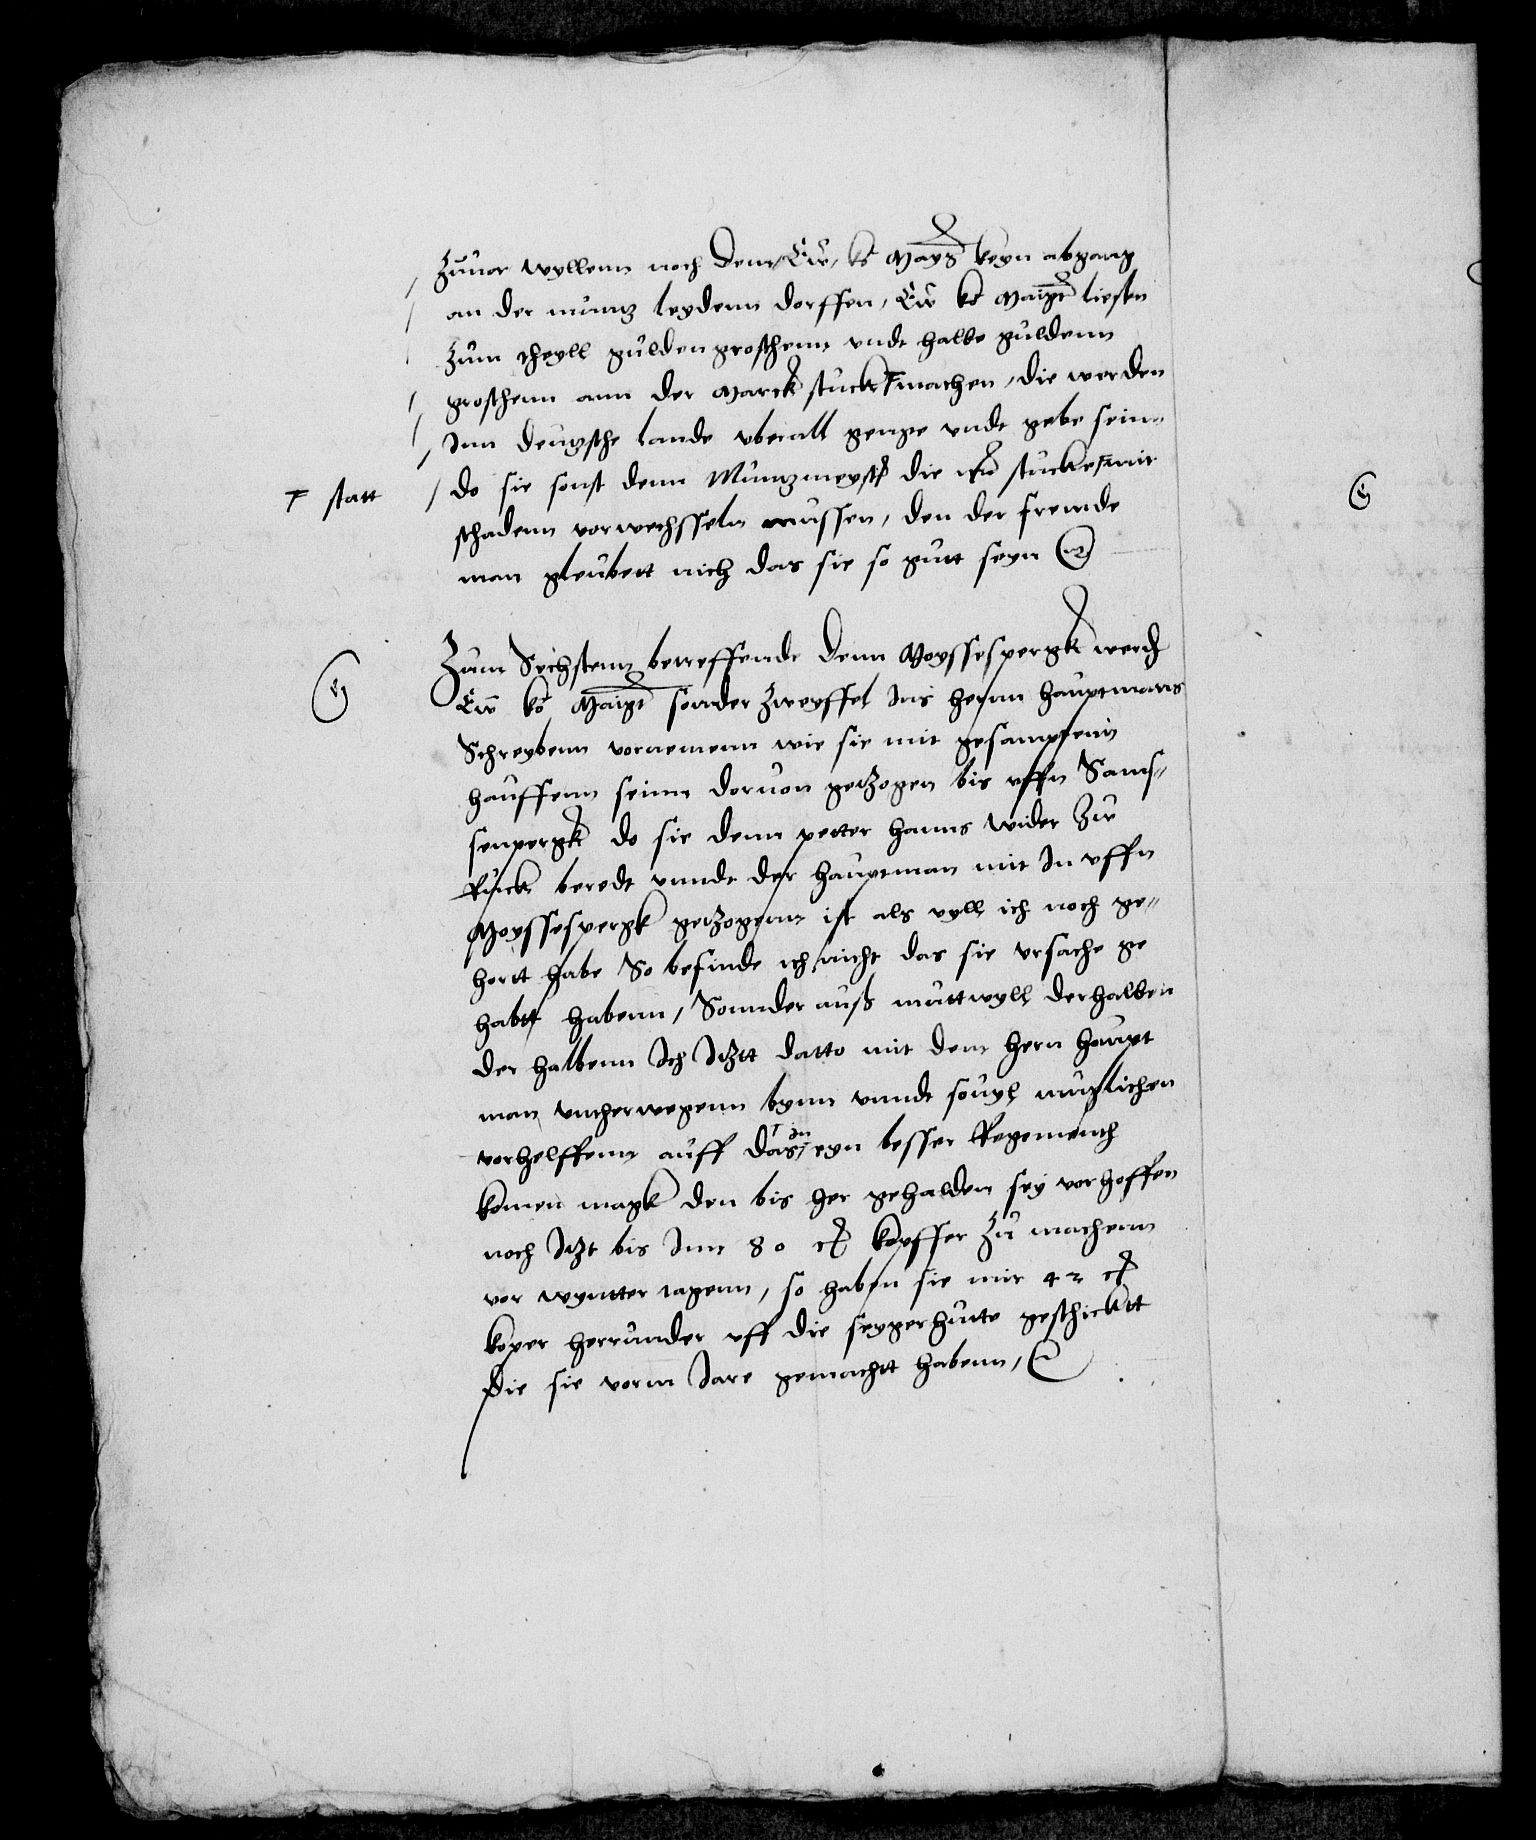 Zuuor wyllenn noch dem, Ew, ko Mayt keyn abgang
an der muntz leydenn dorffen, Ew ko Maigt liesten
zum theyll gulden groschenn vndt halbe guldenn
groschenn ann der Marck stuck machen, die werden
Inn deutzsche lande vberall genge vndt gebe sein
do sie sonst denn Muntzmeyster die stucke mit
schadenn vorwechsseln mussen, den der fremde
man gleubett nich das sie so gutt seyn
Ŧ statt
Zum Sechstenn betreffende denn Moyssespergk werdt
Ew ko Maigt sonder zweyffel Ins hernn hauptmans
Schreybenn vornemenn wie sie mit gesamptenn
hauffenn seinn doruon getzogen bis vffn Sams„
senpergk do sie denn petter hanns wider zw
Ruck beredt vnndt der hauptman mit In vffn
Moyssespergk getzogenn ist als vyll ich noch ge„
hortt habe So befinde ich nicht das sie vrsache ge
habtt habenn, Sonnder auß muttwyll derhalben
der halbenn Ich Itztt datto mit dem hern haupt
man vntherwegenn bynn vnndt souyl muglichen
vorhelffenn auff das, eyn besser Regementh
In
komen magk den bis her gehalden sey vorhoffen
noch Itzt bis Inn 80 ct kopffer zu machenn
vor wyntter tagenn, so haben sie mir 42 ct
koper herrunder vff die seygerhutte geschicktt
die sie vorm Jare gemachtt habenn,